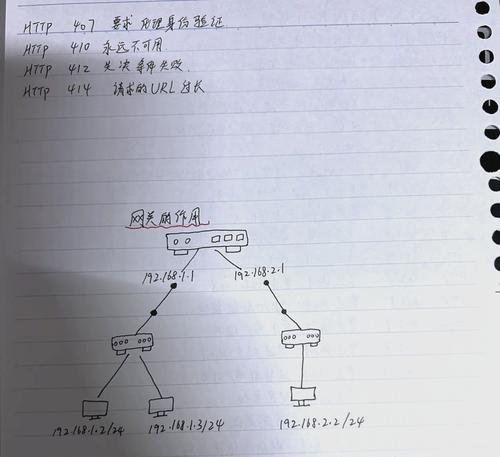 HTTP 407 要求代理身份验证.
HTTP 410 永远不可用
HTTP 412 先决条件失败.
HTTP 414 请求的URL过长
网关的作用
192.168.1.1
192.168.2.1
192.168.1.2/24
192.168.1.3/24
192.168.2.2/24